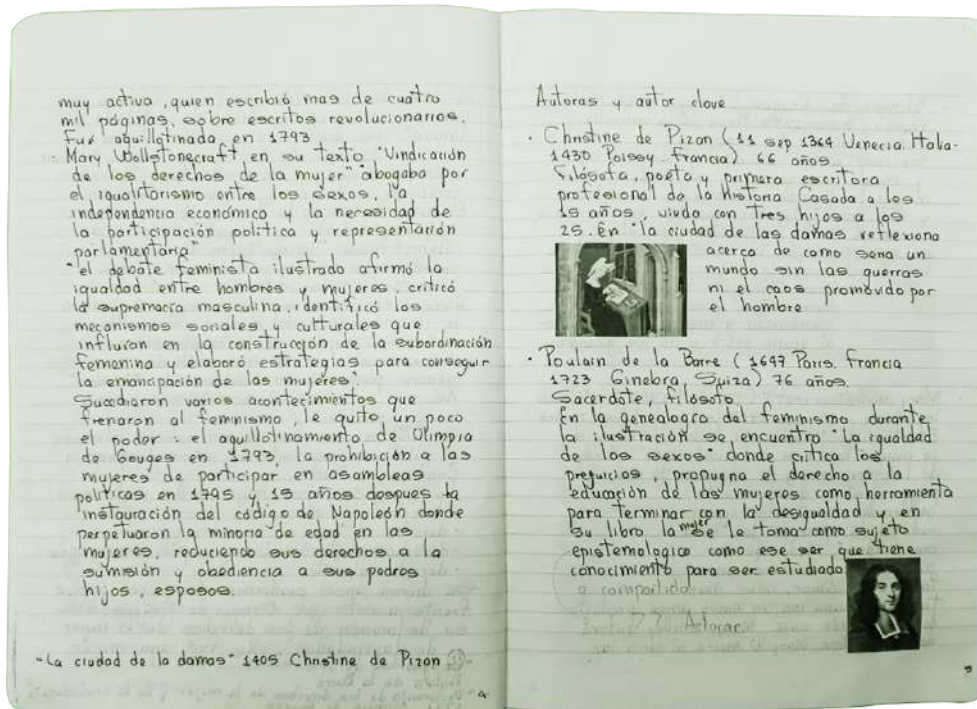 muy activa, quien escribió mas de cuatro
mil páginas, sobre escritos revolucionarios.
Fué aguillotinada en 1793
Mary Wollstonecraft en su texto "Vindicación
de los derechos de la mujer" abogaba por
el igualitarismo entre los sexos, la
independencia económico y la necesidad de
la participación política y representación
parlamentaria"
"el debate feminista ilustrado afirmó la
igualdad entre hombres y mujeres, criticó
la supremacía masculina, identificó los
mecanismos sociales y culturales que
influían en la construcción de la subordinación
femenina y elaboró estrategias para conseguir
la emancipación de las mujeres".
Sucediaron varios acontecimientos que
frenaron al feminismo, le quito un poco
el poder: el aguillotinamiento de Olimpia
de Gouges en 1793, la prohibición a las
mujeres de participar en asambleas
políticas en 1795 y 15 años despues la
instauración del código de Napoleón donde
perpetuaron la minoria de edad en las
mujeres, reduciendo sus derechos a la
sumisión y obediencia a sus padros
hijos, esposos.
"La ciudad de la damas" 1405 Christine de Pizan
4
Autoras y autor clave
· Christine de Pizan (11 sep 1364 Venecia. Italia-
1430 Poissy. Francia) 66 años
Filósofa, poeta y primera escritora
profesional de la historia Casada a los
15 años, viuda con tres hijos a los
25. En "la ciudad de las damas reflexiona
acerca de como seria un
mundo sin las guerras
ni el caos promovido por
el hombre
· Poulain de la Barre (1647 Paris. Francia
1723 Ginebra, Suiza) 76 años.
Sacerdote, filósofo
En la genealogia del feminismo durante
la ilustración se encuentro "La igualdad
de los sexos" donde critica los
prejuicios, propugna el derecho a la
educación de las mujeres como herramienta
para terminar con la desigualdad y en
su libro la mujer se le toma como sujeto
epistemologico como ese ser que tiene
conocimiento para ser estudiado
5